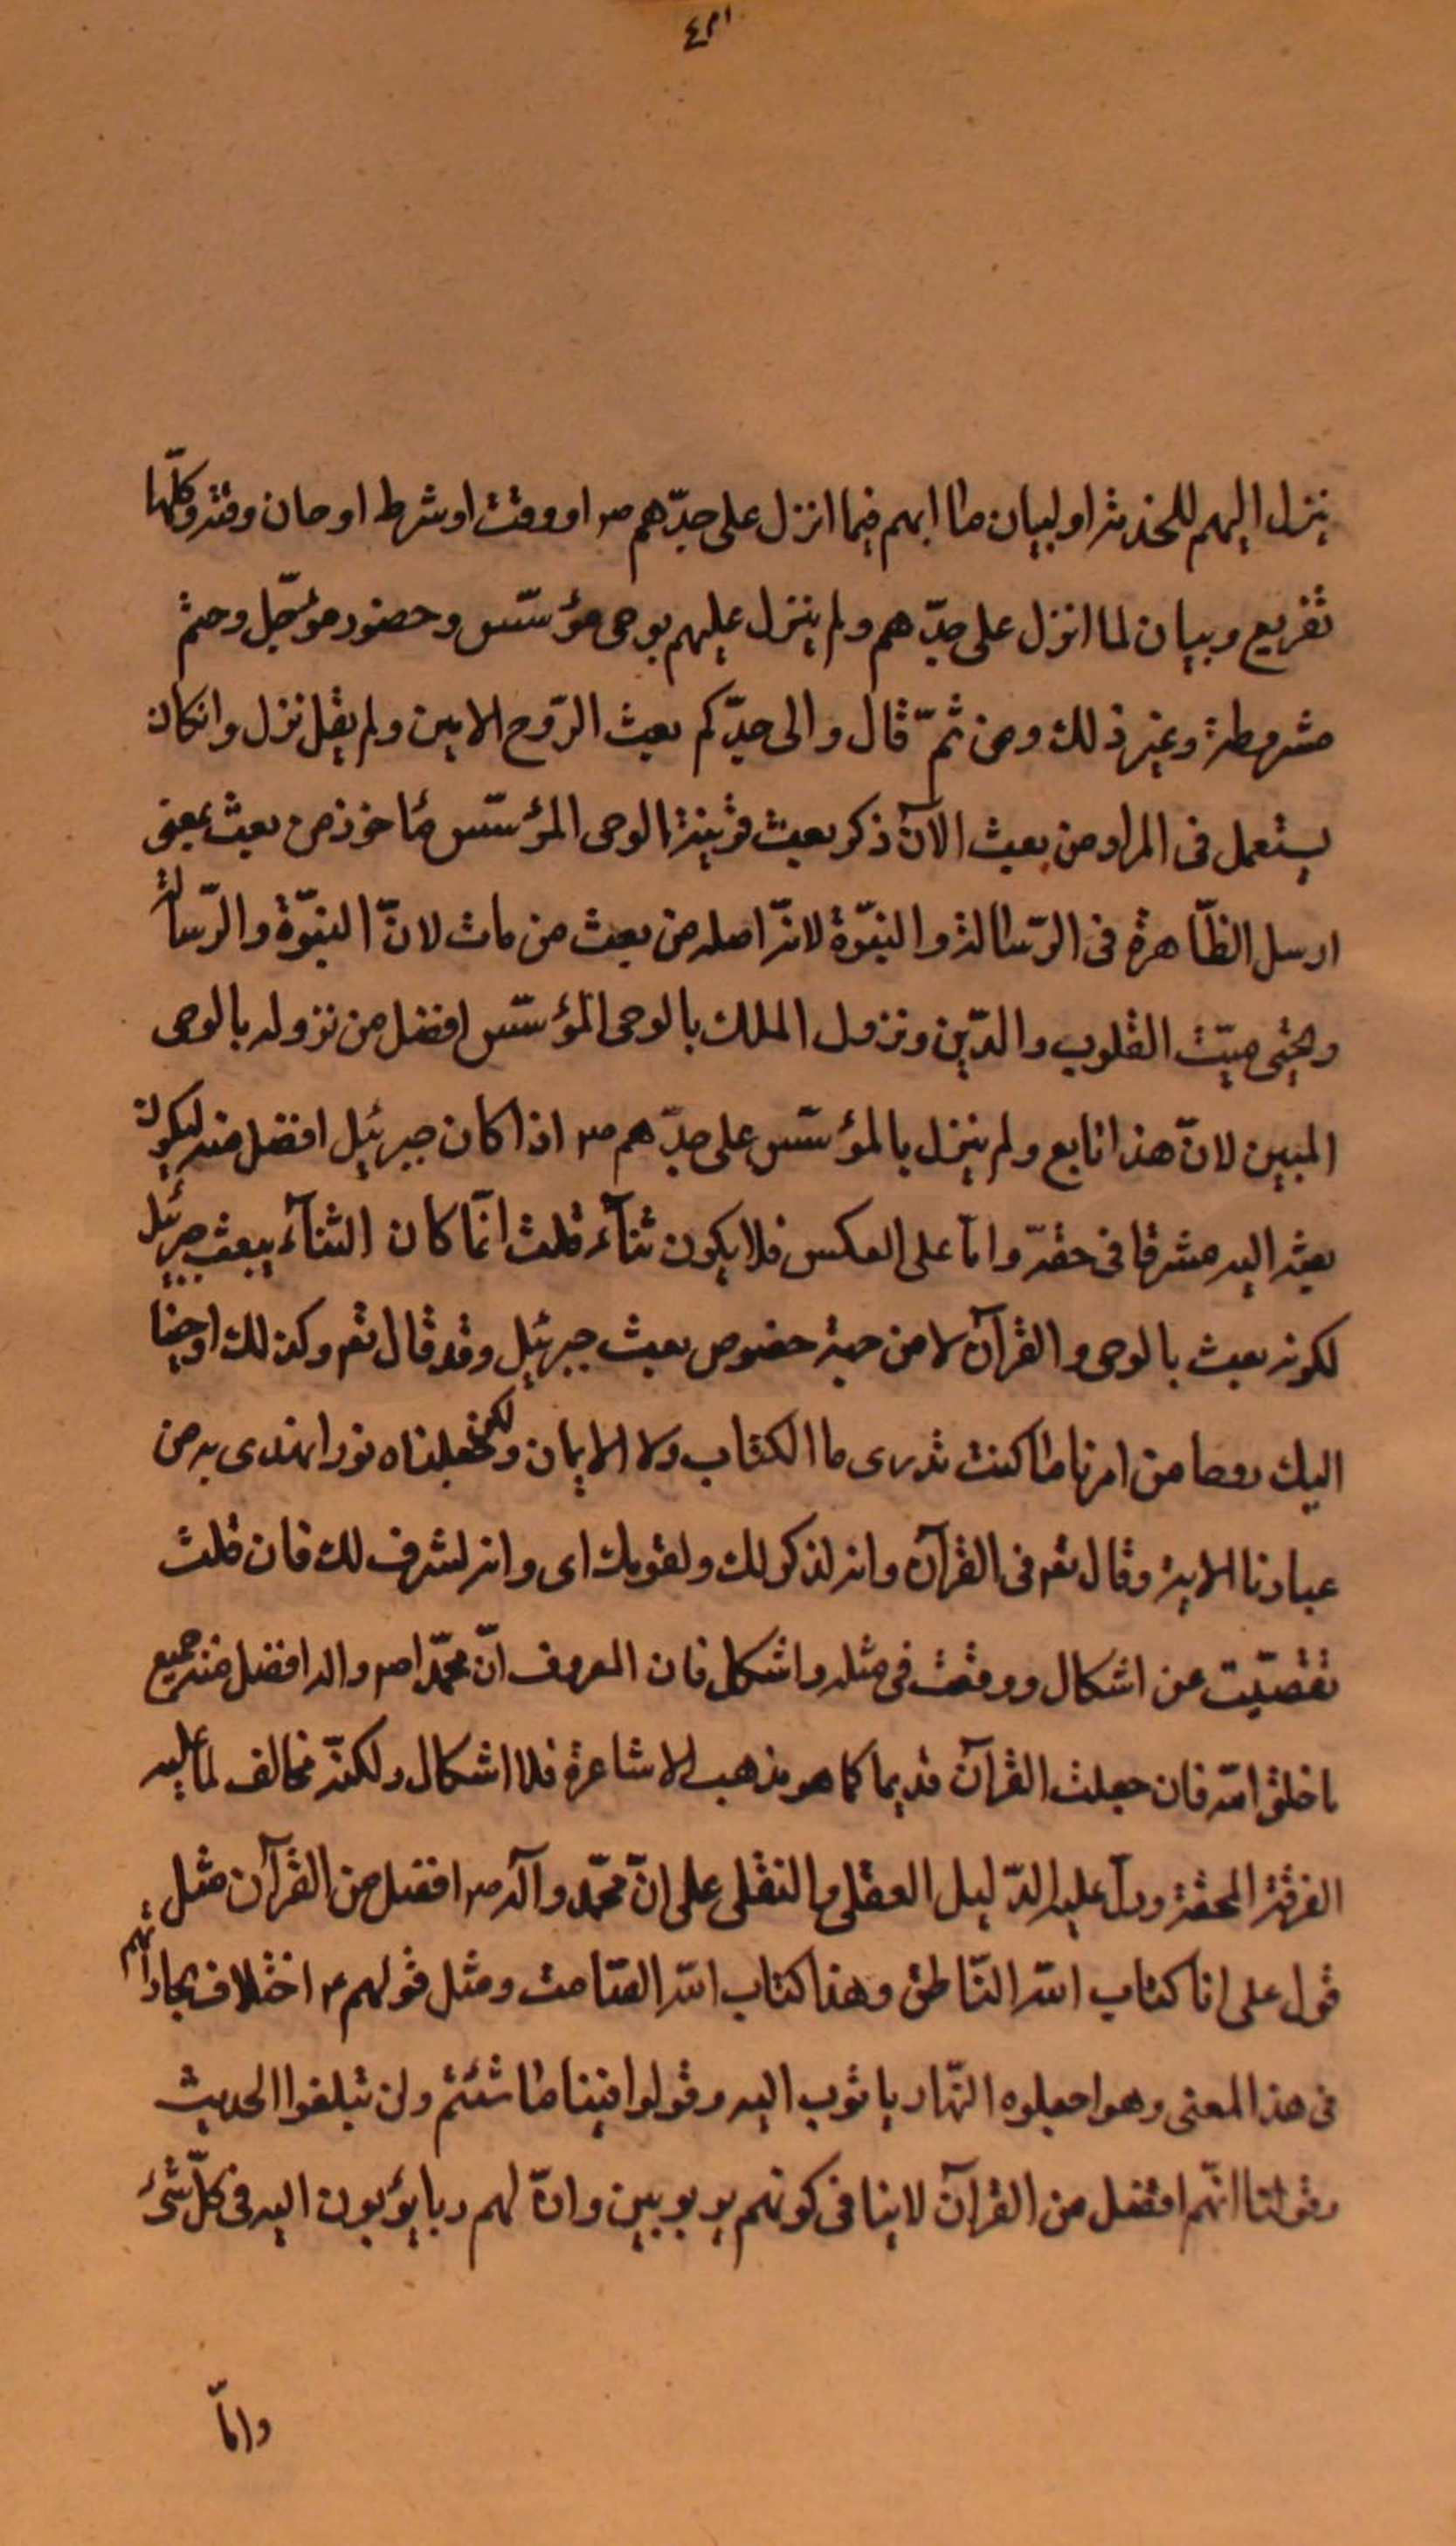 ينزل اليهم للخدمة او لبيان ما ابهم فيما انزل على جدّهم ص او وقت او شرط او حان وقته وكلّها
تفريع وبيان لما انزل على جدّهم ولم ينزل عليهم بوحى مؤسّس وحضور مؤجّل وحتم
مشروطة وغير ذلك ومن ثمّ قال والى جدّكم بعث الرّوح الامين ولم يقل نزل وانكان
يستعمل فى المراد من بعث الاّن ذكر بعث قرينة الوحى المؤسّس مأخوذ من بعث بمعنى
ارسل الظّاهرة فى الرّسالة والنبوّة لانّه اصله من بعث من مات لانّ النبوّة والرّسالة
وتحيى ميّت القلوب والدّين ونزول الملك بالوحى المؤسّس افضل من نزوله بالوحى
المبين لانّ هذا تابع ولم ينزل بالمؤسّس على جدّهم ص اذا كان جبرئيل افضل منه ليكون
بعثه اليه مشرفا فى حقه وامّا على العكس فلا يكون ثنآء قلت انّما كان الثنآء ببعث جبرئيل
لكونه بعث بالوحى والقرآن لا من جهة خصوص بعث جبرئيل وقد قال تعم وكذلك اوحينا
اليك روحا من امرنا ما كنت تدرى ما الكتاب ولا الايمان ولكن جعلناه نورا نهدى به من
عبادنا الاية وقال تعم فى القرآن وانه لذكر لك ولقومك اى وانه لشرف لك فان قلت
تفصّيت عن اشكال ووقعت فى مثله واشكل فان المعروف انّ محمّدا ص واله افضل من جميع
ما خلق الله فان جعلت القرآن قديما كما هو مذهب الاشاعرة فلا اشكال ولكنّه مخالف لما عليه
الفرقة المحقة ودلّ عليه الدّليل العقلى والنقلى على انّ محمّد وآله ص افضل من القرآن مثل
قول على انا كتاب الله النّاطق وهذا كتاب الله الصّامت ومثل قولهم ع اختلاف عباراتهم
فى هذا المعنى وهو اجعلوه النا ربا نؤب اليه وقولوا فينا ما شئتم ولن تبلغوا الحديث
وقولنا انّهم افضل من القرآن لا ينافى كونهم مربوبين وانّ لهم ربا يؤبون اليه فى كلّ شئ
وامّا